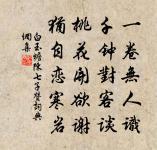 一卷無人識
千鍾對客談
桃花開欲謝
猶自戀寒岩
白玉蟾陳七子贊詞典
網集